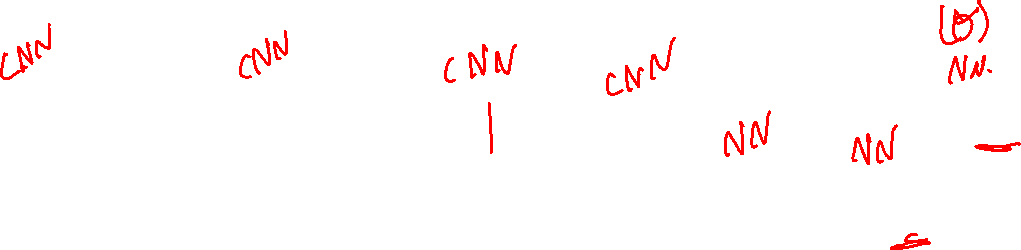 CNN CNN CNN CNN
NN.
NN NN